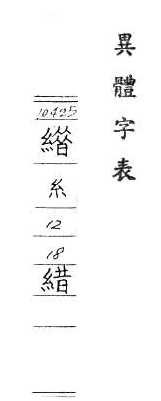 異體字表
10425
糸
12
18